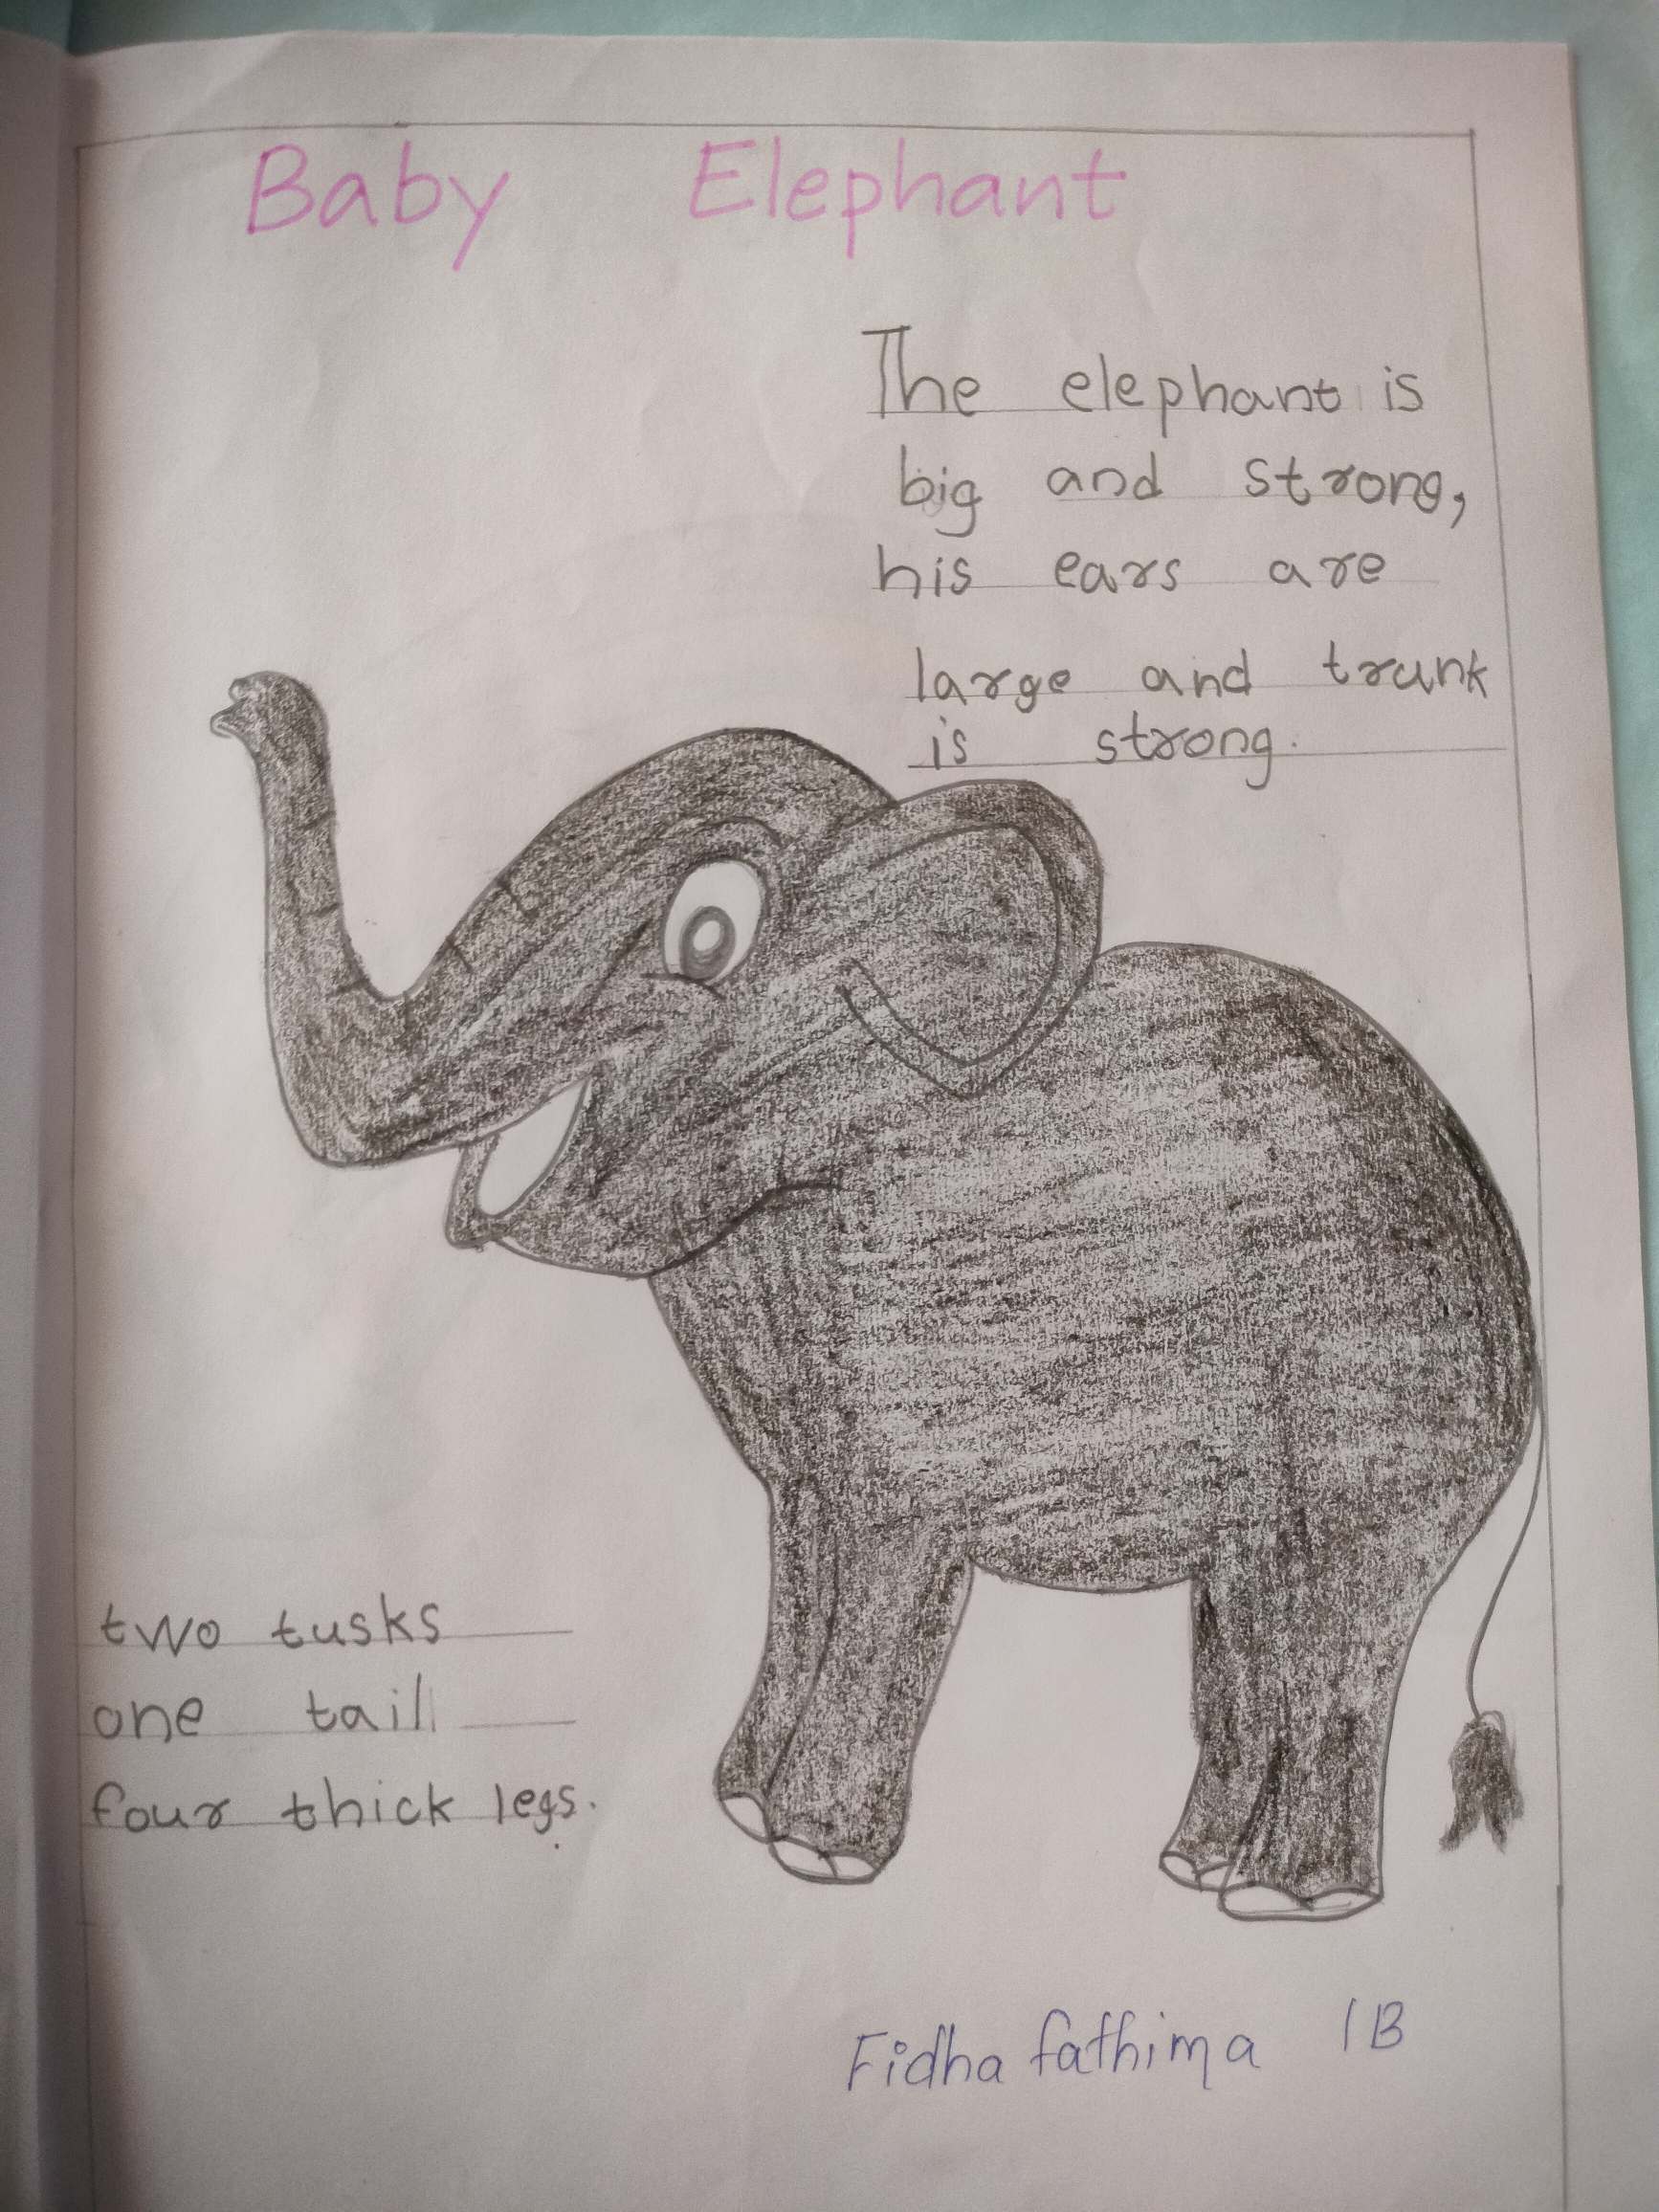 Baby Elephant
The elephant is
big and strong,
his ears are
large and trunk
is strong.
two tusks
one tail
four thick legs.
Fidha fathima 1B